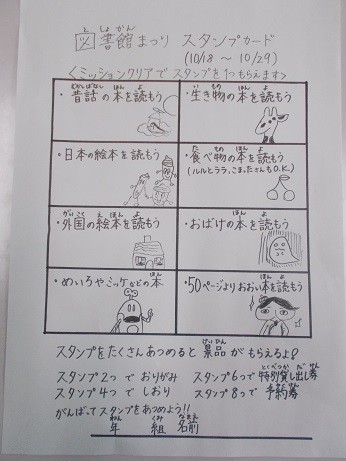 図書館まつり スタンプカード
(10/18 ～ 10/29)
＜ミッションクリアでスタンプを1つもらえます＞
・昔話の本を読もう
・生き物の本を読もう
・日本の絵本を読もう
・食べ物の本を読もう
(ルルとララ、こまったさんもO.K.)
・外国の絵本を読もう
・おばけの本を読もう
・めいろやミッケなどの本
・50ページよりおおい本を読もう
スタンプをたくさんあつめると景品がもらえるよ♪
スタンプ2つで おりがみ スタンプ6つで 特別貸し出し券
スタンプ4つで しおり スタンプ8つで 予約券
がんばってスタンプをあつめよう!!
年 組 名前